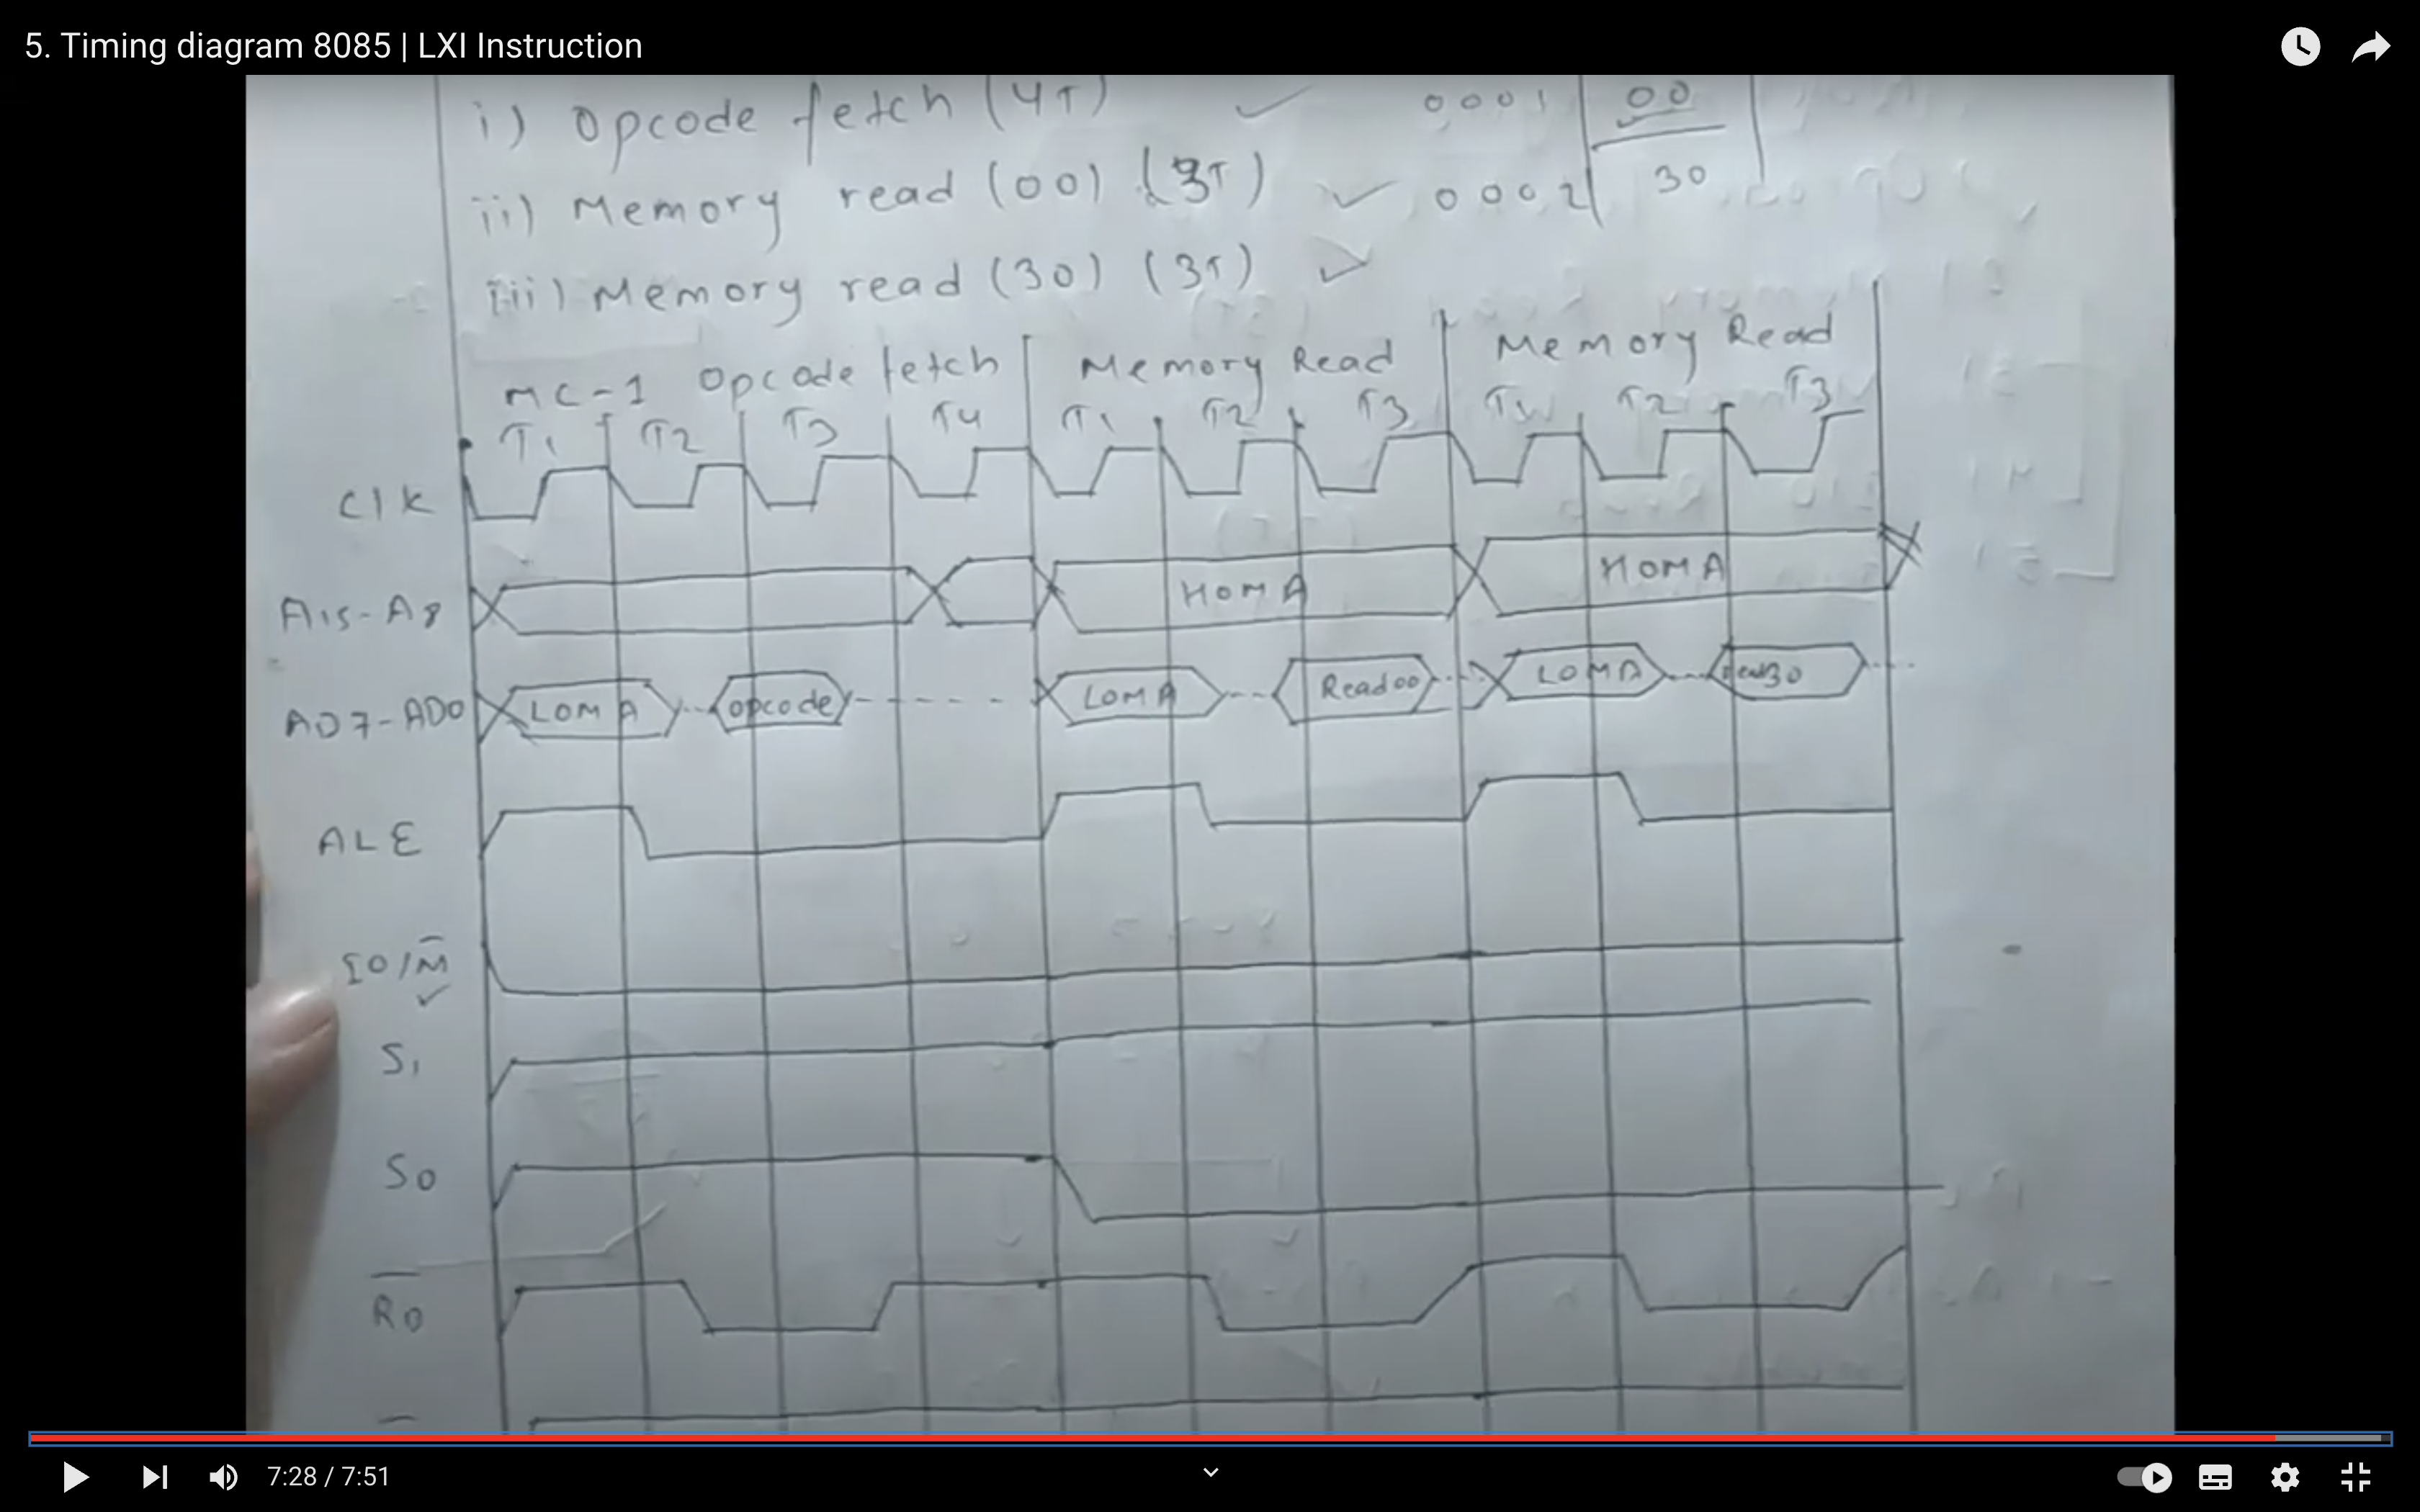 5. Timing diagram 8085 | LXI Instruction
i) Opcode fetch (4T) ✓ 0001 00
ii) Memory read (00) (3T) ✓ 0002 30
iii) Memory read (30) (3T)
MC-1 Opcode fetch Memory Read Memory Read
T1 T2 T3 T4 T1 T2 T3 T1 T2 T3
Clk
A15-A8 HOMA HOMA
AD7-AD0 LOMA opcode LOMA Read00 LOMA
ALE
IO/M̅
S1
S0
R̅D̅
7:28 / 7:51